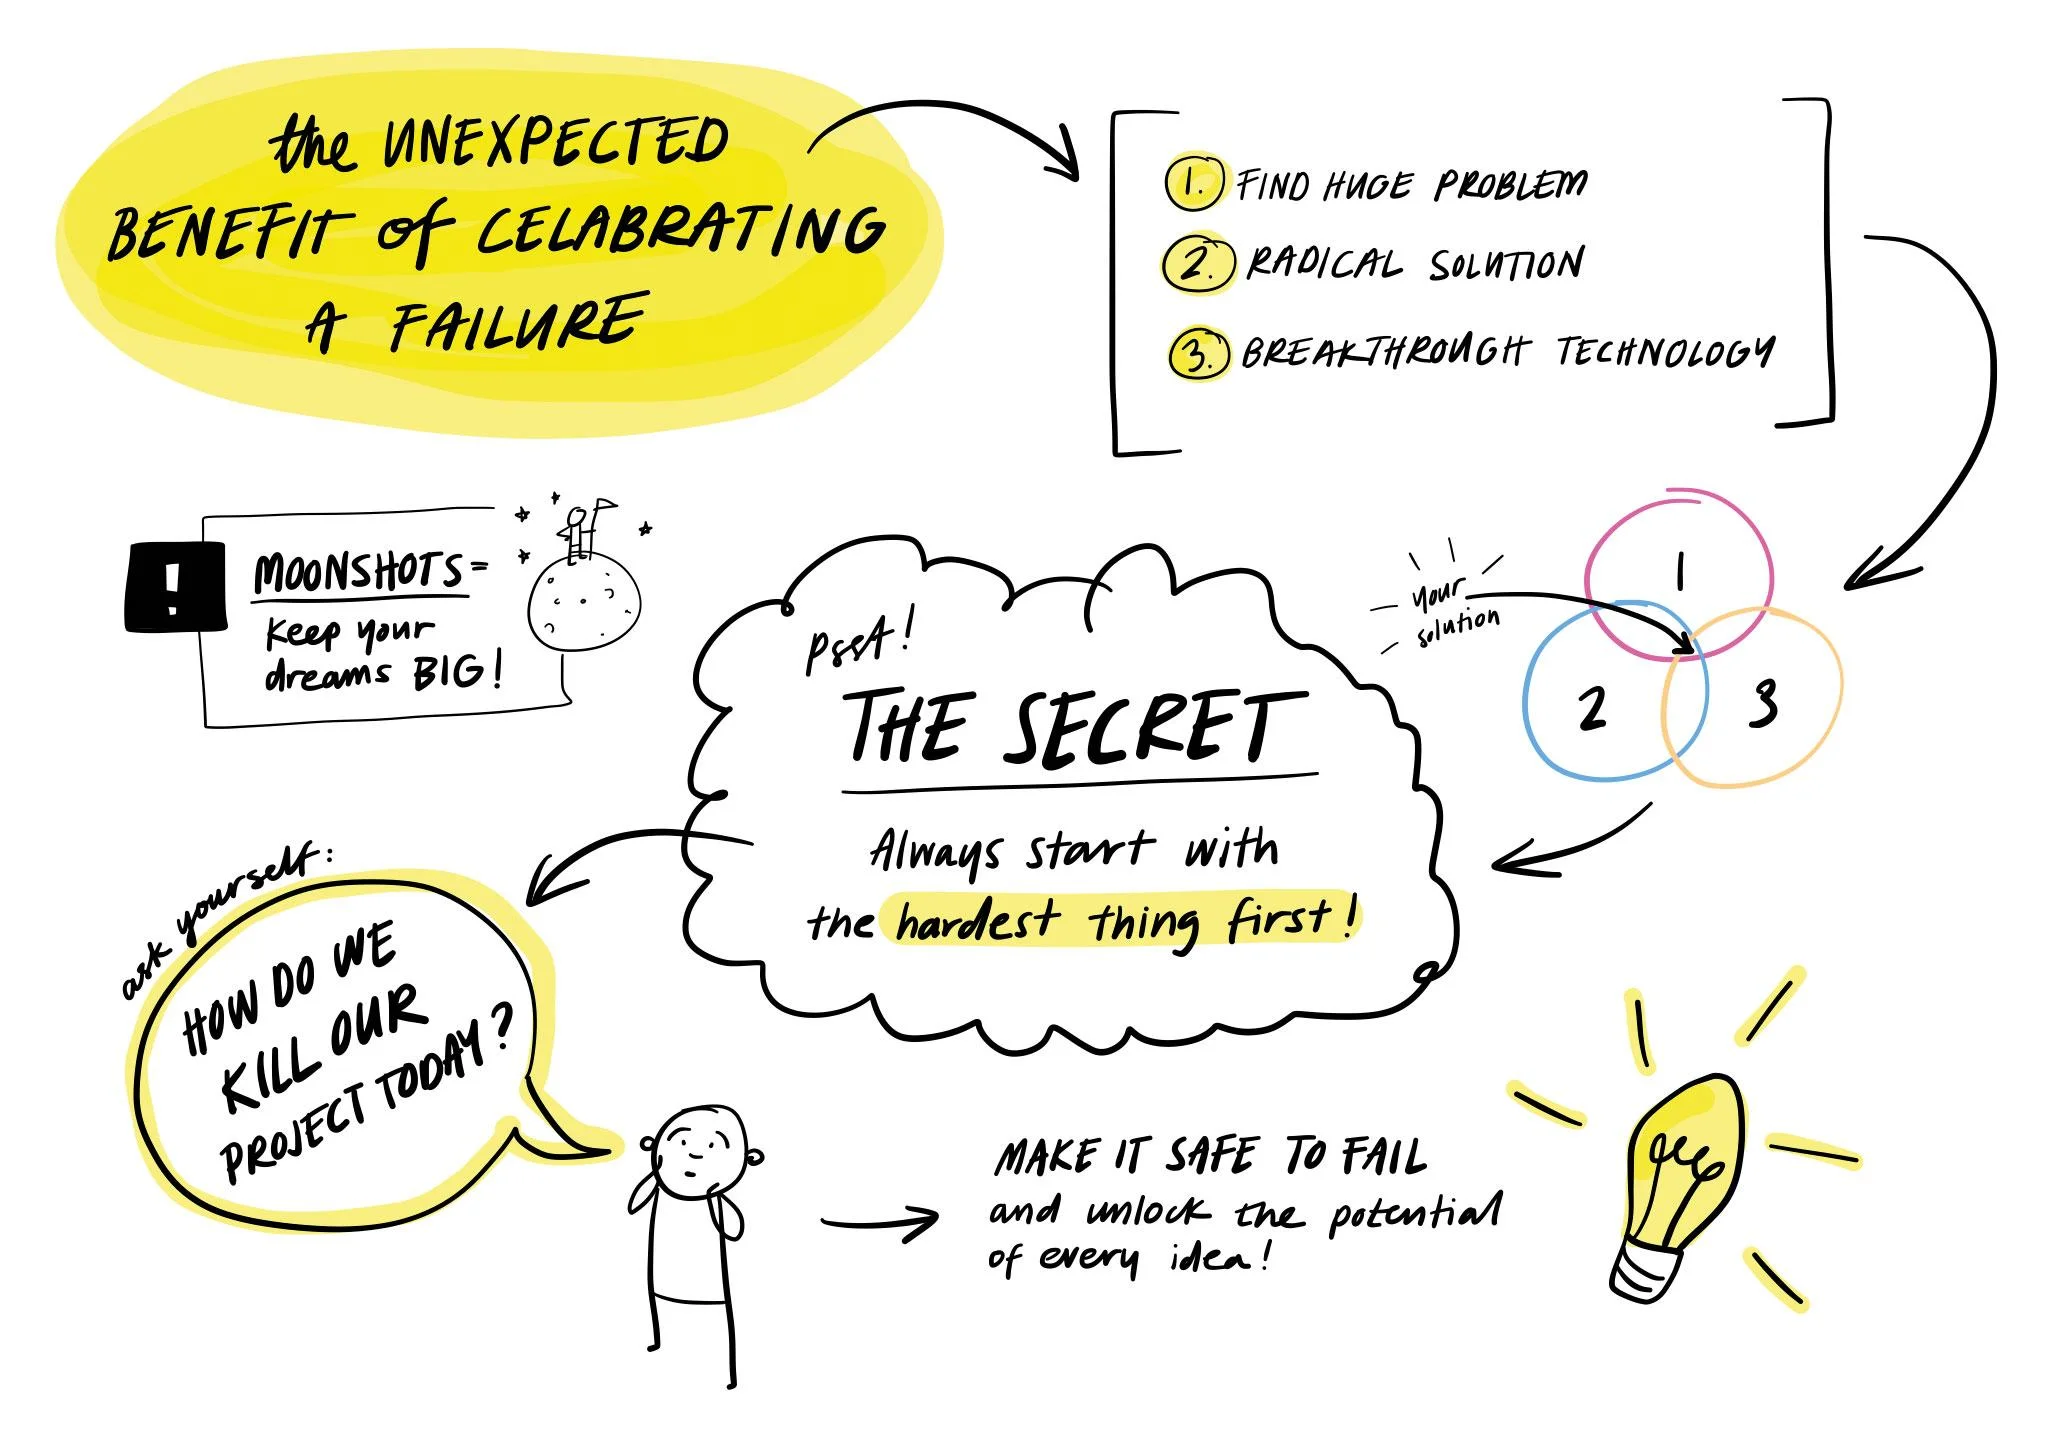 the UNEXPECTED
BENEFIT of CELABRATING
A FAILURE
1. FIND HUGE PROBLEM
2. RADICAL SOLUTION
3. BREAKTHROUGH TECHNOLOGY
!
MOONSHOTS =
Keep your
dreams BIG!
your
solution
1
2
3
PssA!
THE SECRET
Always start with
the hardest thing first!
ask yourself:
HOW DO WE
KILL OUR
PROJECT TODAY?
MAKE IT SAFE TO FAIL
and unlock the potential
of every idea!